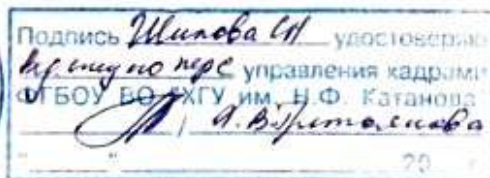 Подпись Шипова СН удостоверяю
вед. спец по перс управления кадрами
ФГБОУ ВО «ХГУ им. Н.Ф. Катанова
" " 20